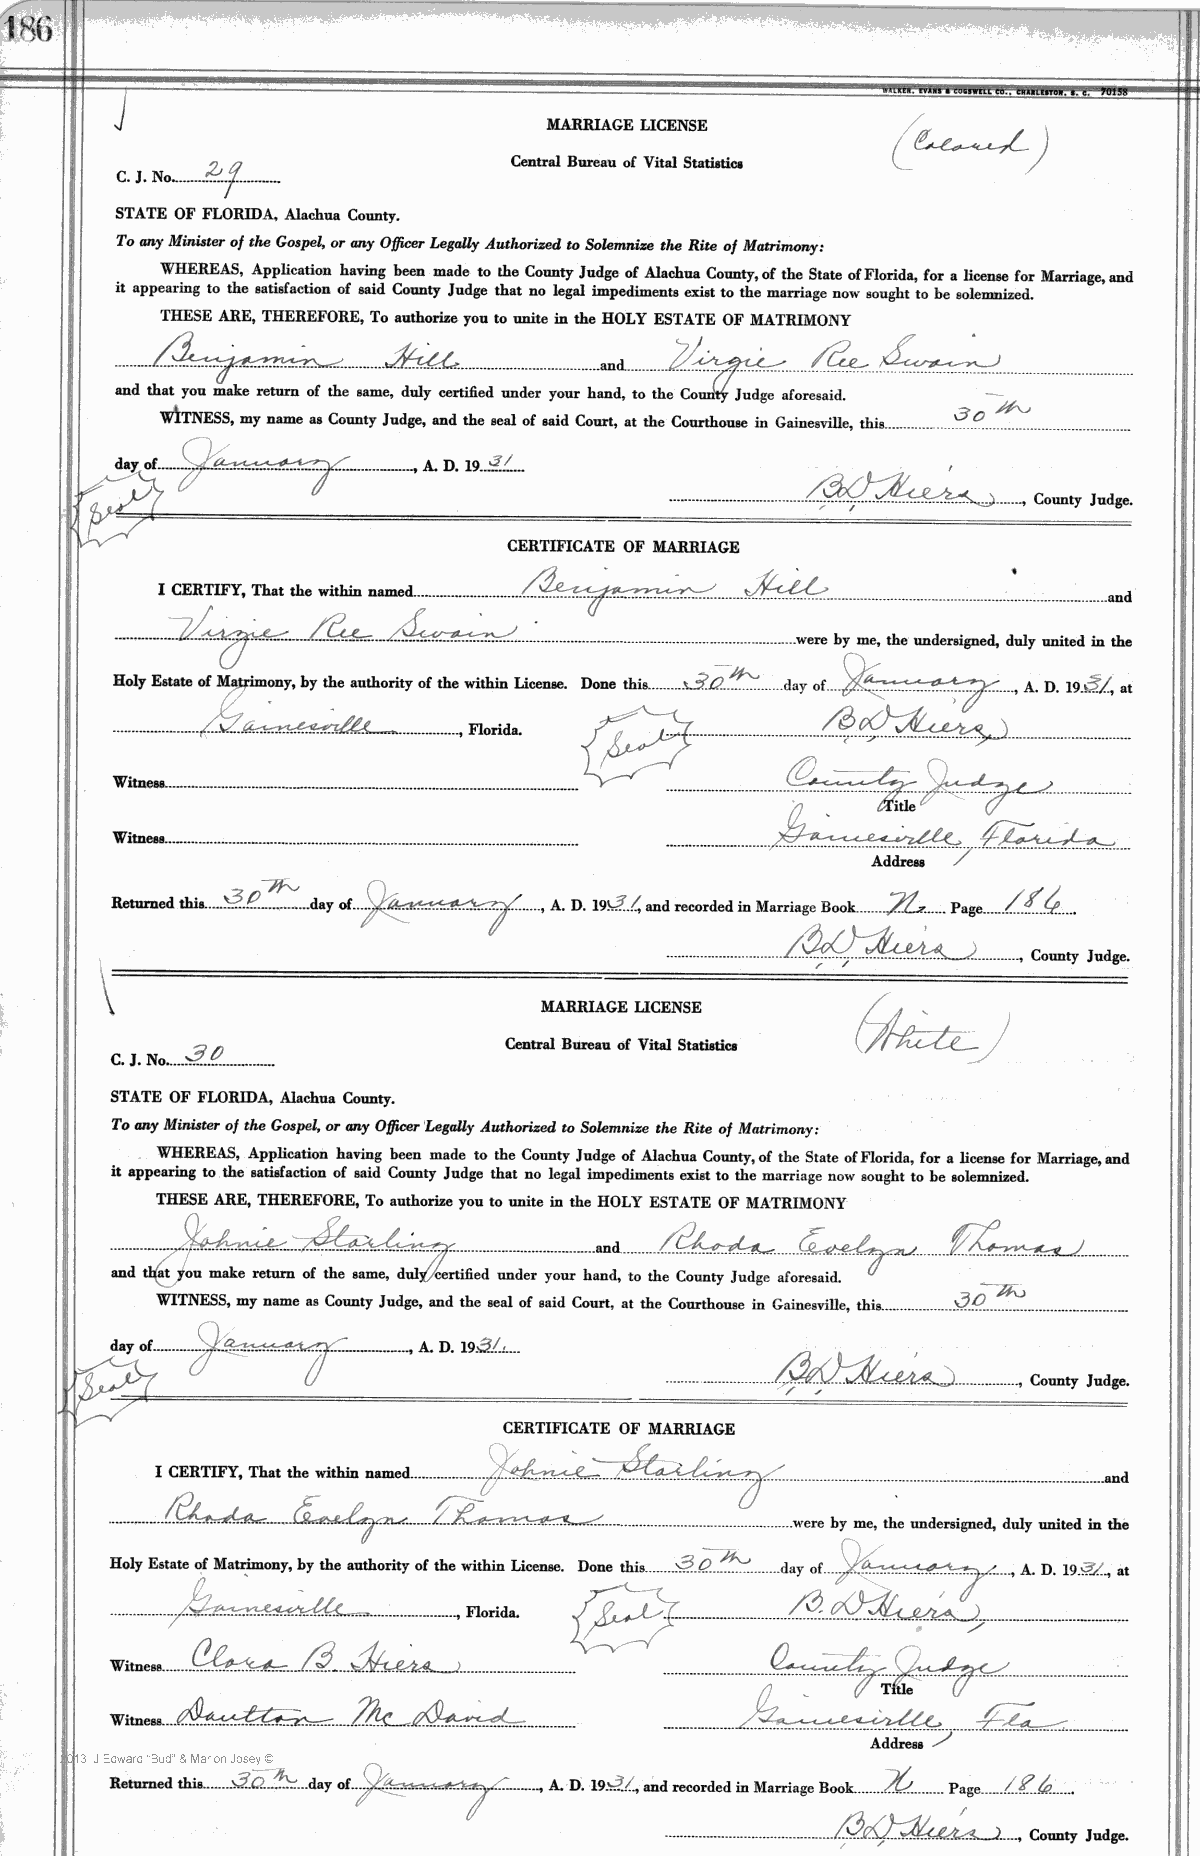 186
WALKER, EVANS & COGSWELL CO., CHARLESTON, S. C. 70158
MARRIAGE LICENSE
(Colored)
Central Bureau of Vital Statistics
C. J. No. 29
STATE OF FLORIDA, Alachua County.
To any Minister of the Gospel, or any Officer Legally Authorized to Solemnize the Rite of Matrimony:
WHEREAS, Application having been made to the County Judge of Alachua County, of the State of Florida, for a license for Marriage, and
it appearing to the satisfaction of said County Judge that no legal impediments exist to the marriage now sought to be solemnized.
THESE ARE, THEREFORE, To authorize you to unite in the HOLY ESTATE OF MATRIMONY
Benjamin Hill and Virgie Ree Swain
and that you make return of the same, duly certified under your hand, to the County Judge aforesaid.
WITNESS, my name as County Judge, and the seal of said Court, at the Courthouse in Gainesville, this 30th
day of January, A. D. 1931
Seal
B D Hiers, County Judge.
CERTIFICATE OF MARRIAGE
I CERTIFY, That the within named Benjamin Hill and
Virgie Ree Swain were by me, the undersigned, duly united in the
Holy Estate of Matrimony, by the authority of the within License. Done this 30th day of January, A. D. 1931, at
Gainesville, Florida. Seal B D Hiers,
Witness County Judge
Title
Witness Gainesville, Florida
Address
Returned this 30th day of January, A. D. 1931, and recorded in Marriage Book N. Page 186.
B D Hiers, County Judge.
MARRIAGE LICENSE
(White)
Central Bureau of Vital Statistics
C. J. No. 30
STATE OF FLORIDA, Alachua County.
To any Minister of the Gospel, or any Officer Legally Authorized to Solemnize the Rite of Matrimony:
WHEREAS, Application having been made to the County Judge of Alachua County, of the State of Florida, for a license for Marriage, and
it appearing to the satisfaction of said County Judge that no legal impediments exist to the marriage now sought to be solemnized.
THESE ARE, THEREFORE, To authorize you to unite in the HOLY ESTATE OF MATRIMONY
Johnie Starling and Rhoda Evelyn Thomas
and that you make return of the same, duly certified under your hand, to the County Judge aforesaid.
WITNESS, my name as County Judge, and the seal of said Court, at the Courthouse in Gainesville, this 30th
day of January, A. D. 1931.
Seal
B D Hiers, County Judge.
CERTIFICATE OF MARRIAGE
I CERTIFY, That the within named Johnie Starling and
Rhoda Evelyn Thomas were by me, the undersigned, duly united in the
Holy Estate of Matrimony, by the authority of the within License. Done this 30th day of January, A. D. 1931, at
Gainesville, Florida. Seal B. D Hiers,
Witness Clara B. Hiers County Judge
Title
Witness Dautton Mc David Gainesville, Fla
Address
2013 J Edward "Bud" & Marion Josey ©
Returned this 30th day of January, A. D. 1931, and recorded in Marriage Book N Page 186.
B D Hiers, County Judge.